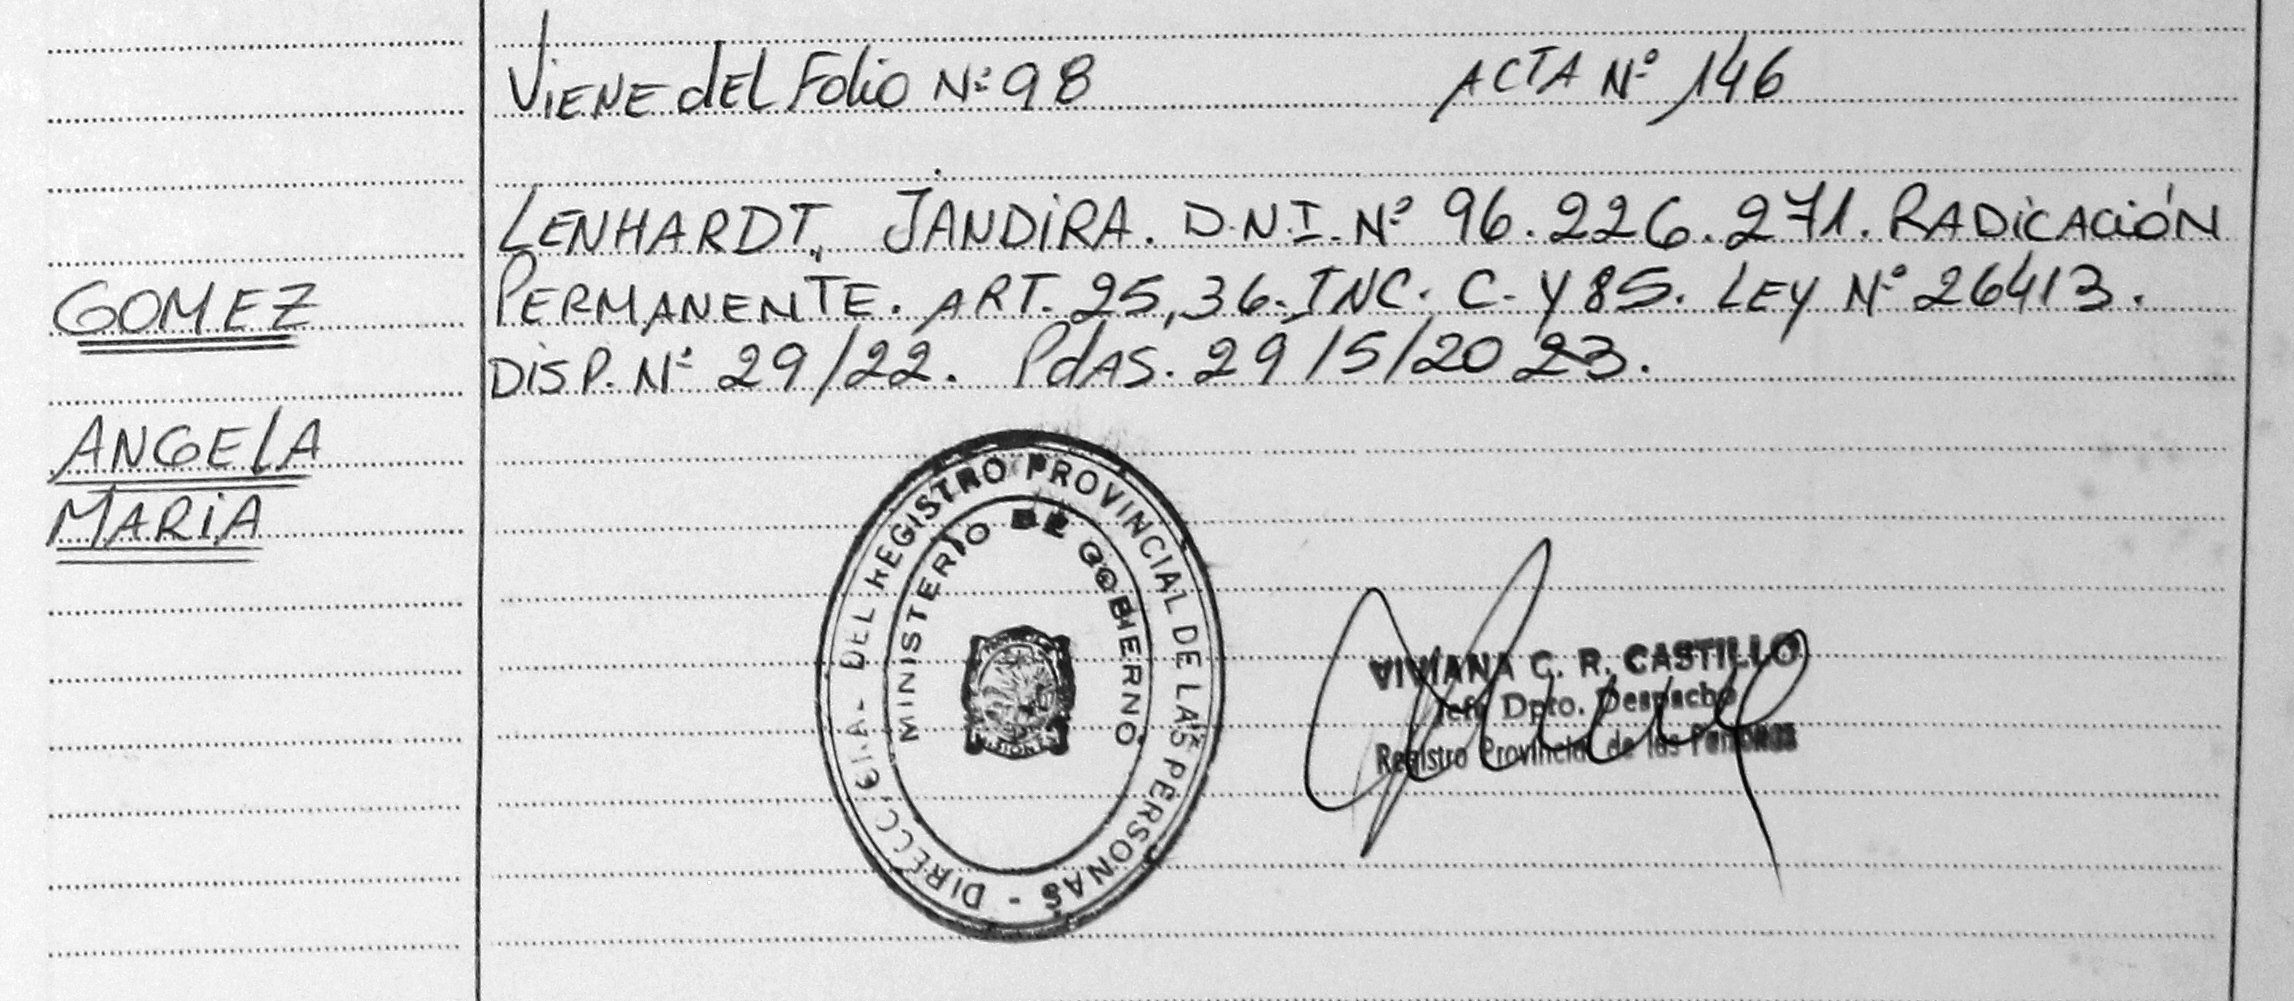 Viene del Folio Nº 98 ACTA Nº 146
LENHARDT, JANDIRA. D.N.I. Nº 96.226.271. RADICACIÓN
PERMANENTE. ART. 25, 36. INC. C. Y 85. LEY Nº 26413.
DISP. Nº 29/22. PdAS. 29/5/2023.
GOMEZ
ANGELA
MARIA
DIRECC. GRAL. DEL REGISTRO PROVINCIAL DE LAS PERSONAS -
MINISTERIO DE GOBIERNO
VIVIANA C. R. CASTILLO
Jefe Dpto. Despacho
Registro Provincial de las Personas